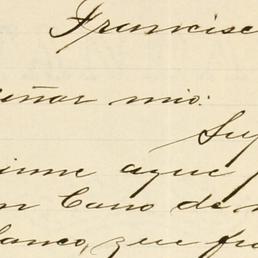 Francisc
eñor mio:
Su
aque
n Cano de
lanco, que